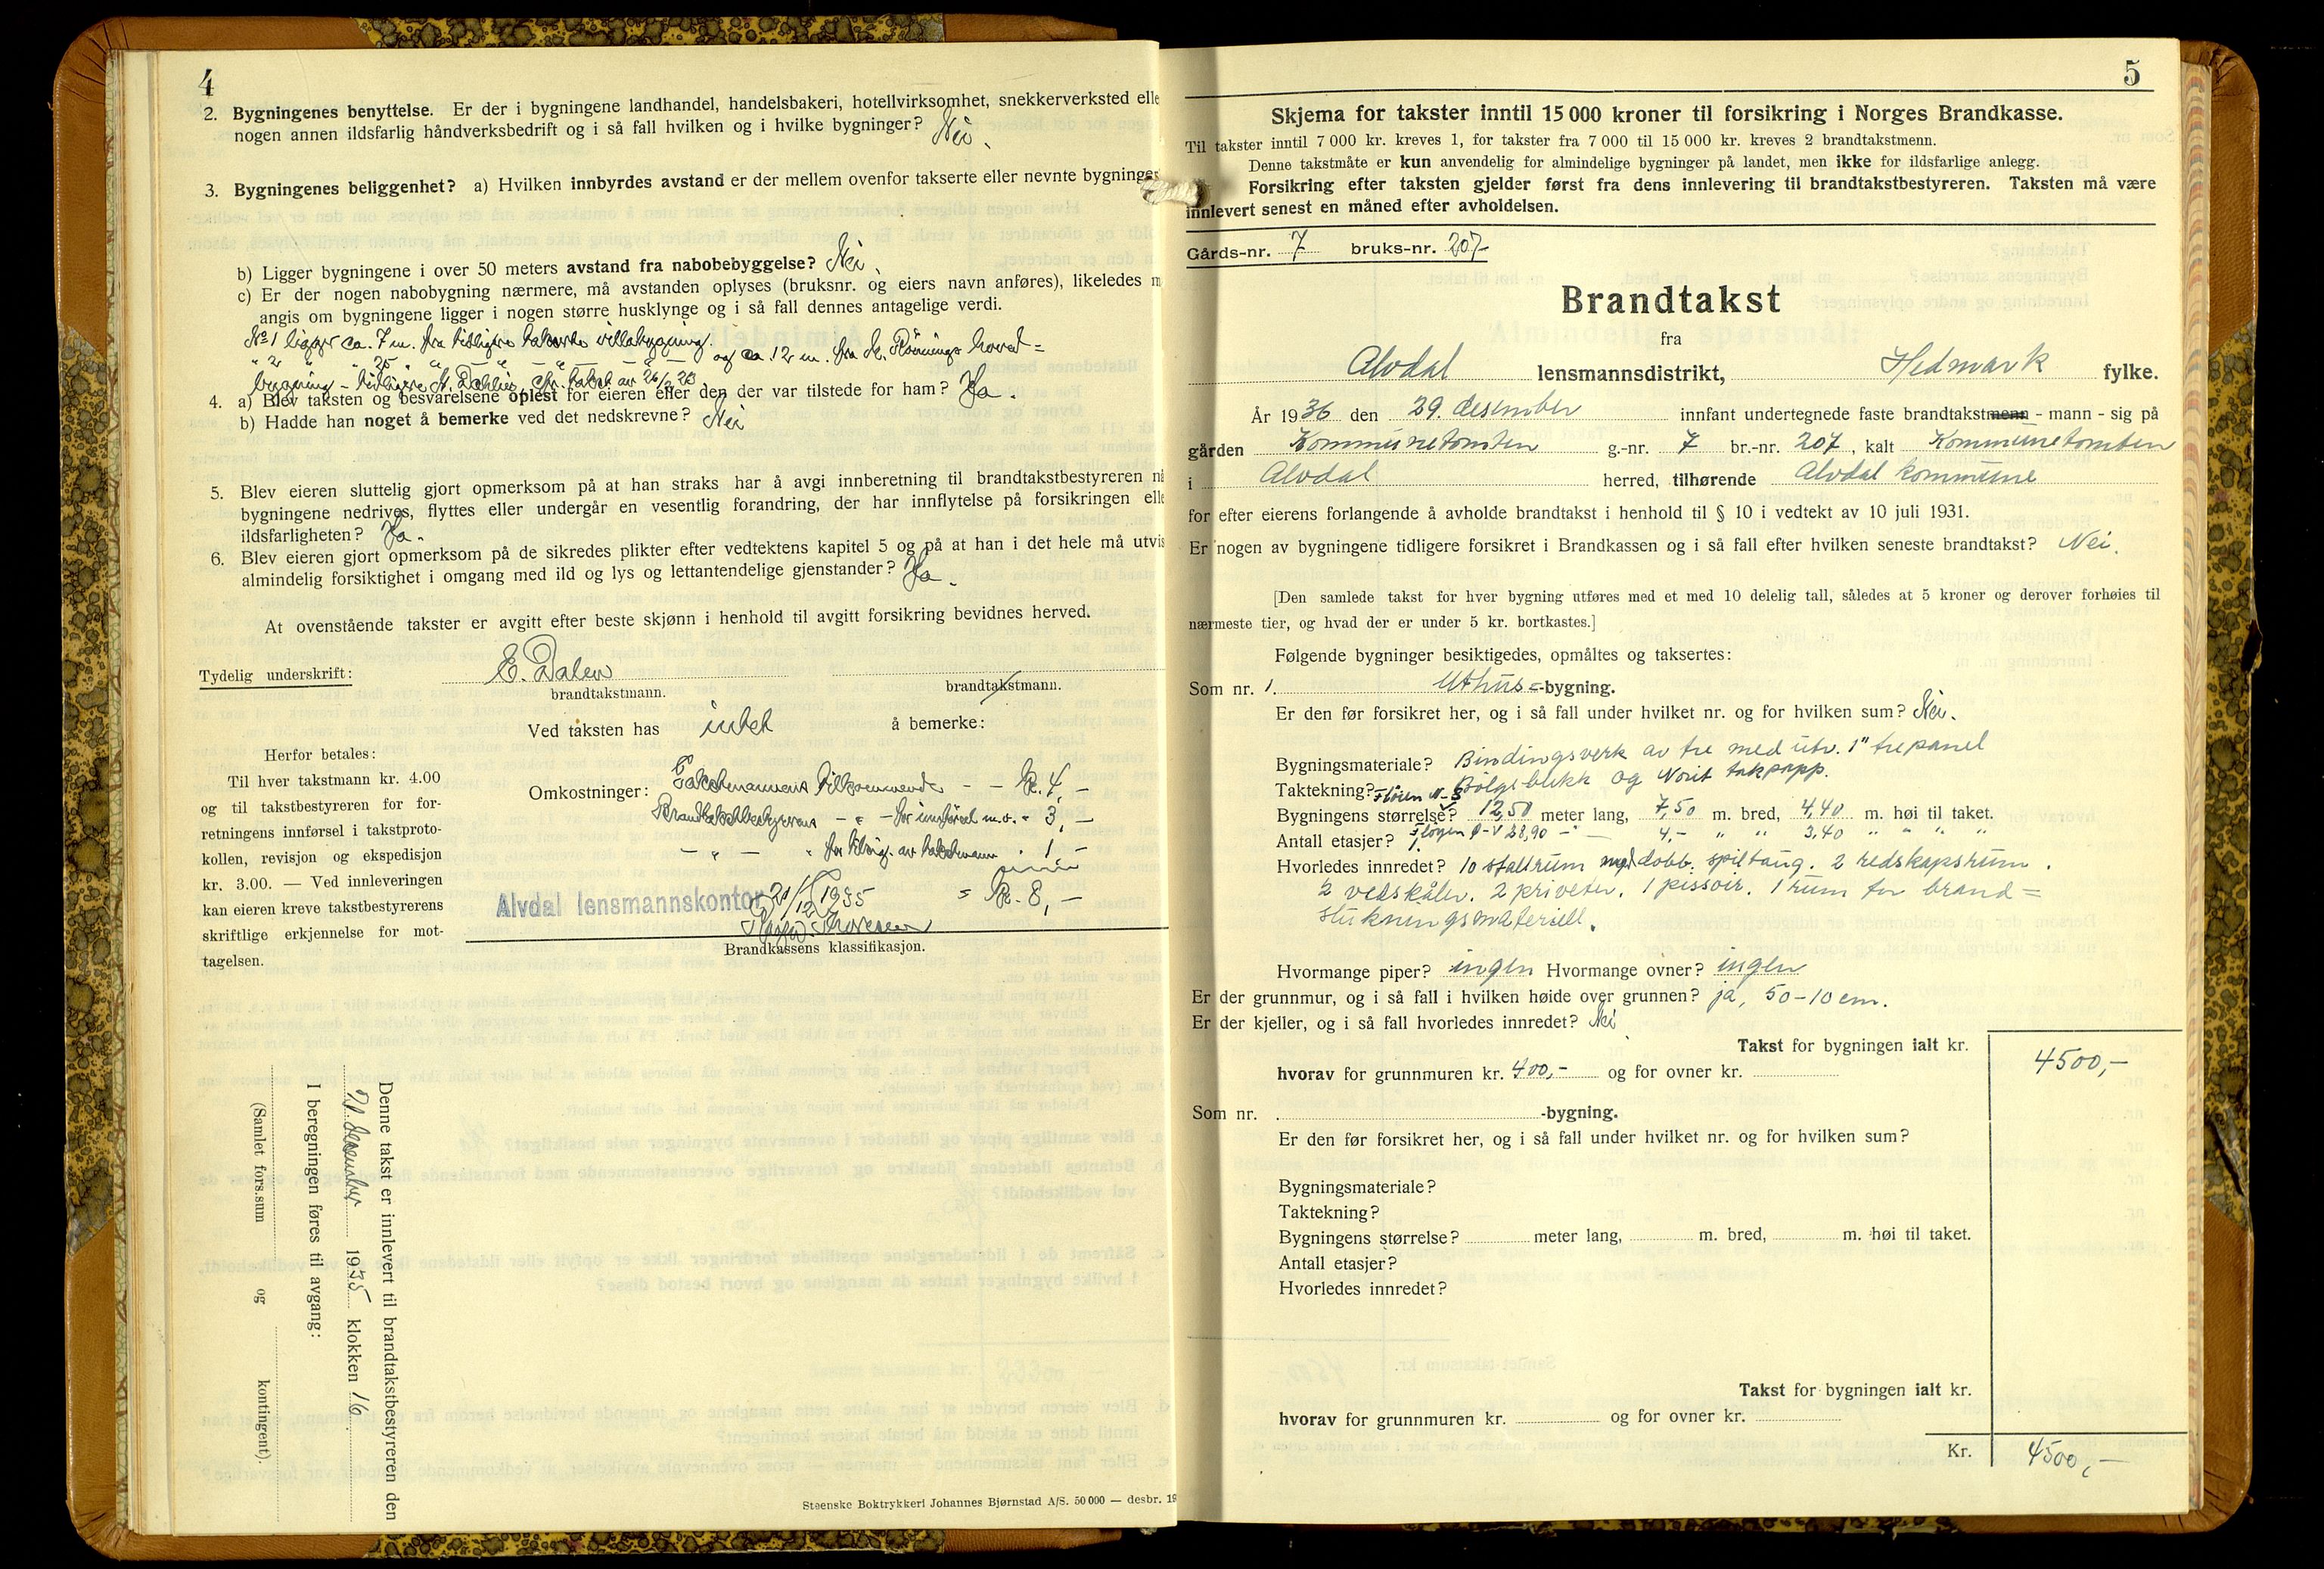 4
2. Bygningenes benyttelse. Er der i bygningene landhandel, handelsbakeri, hotellvirksomhet, snekkerverksted elle
nogen annen ildsfarlig håndverksbedrift og i så fall hvilken og i hvilke bygninger? Nei.
3. Bygningenes beliggenhet? a) Hvilken innbyrdes avstand er der mellem ovenfor takserte eller nevnte bygninger
b) Ligger bygningene i over 50 meters avstand fra nabobebyggelse? Nei.
c) Er der nogen nabobygning nærmere, må avstanden oplyses (bruksnr. og eiers navn anføres), likeledes m
angis om bygningene ligger i nogen større husklynge og i så fall dennes antagelige verdi.
No 1 ligger ca. 7 m. fra tidligere takserte villabygning.
" 2 " " 25 " " — " — " — og ca 12 m. fra Rönnings hoved=
bygning - tidligere Dahlis, takst av 26/2 23
4. a) Blev taksten og besvarelsene oplest for eieren eller den der var tilstede for ham? Ja.
b) Hadde han noget å bemerke ved det nedskrevne? Nei
5. Blev eieren sluttelig gjort opmerksom på at han straks har å avgi innberetning til brandtakstbestyreren nå
bygningene nedrives, flyttes eller undergår en vesentlig forandring, der har innflytelse på forsikringen elle
ildsfarligheten? Ja.
6. Blev eieren gjort opmerksom på de sikredes plikter efter vedtektens kapitel 5 og på at han i det hele må utvis
almindelig forsiktighet i omgang med ild og lys og lettantendelige gjenstander? Ja.
At ovenstående takster er avgitt efter beste skjønn i henhold til avgitt forsikring bevidnes herved.
Tydelig underskrift: E. Dalen
brandtakstmann. brandtakstmann.
Ved taksten has intet å bemerke:
Herfor betales:
Til hver takstmann kr. 4.00
og til takstbestyreren for for-
retningens innførsel i takstproto-
kollen, revisjon og ekspedisjon
kr. 3.00. — Ved innleveringen
kan eieren kreve takstbestyrerens
skriftlige erkjennelse for mot-
tagelsen.
Omkostninger: Takstmannens tilkommende — — Kr. 4,-
Brandtakstbestyrerens — " — for innførsel m.v. " 3,-
— " — " for tilsig. av takstmann " 1,-
= Kr. 8,-
Alvdal lensmannskontor 21/12 1935
Brandkassens klassifikasjon.
Denne takst er innlevert til brandtakstbestyreren den
21. desember 1935 klokken 16.
I beregningen føres til avgang:
(Samlet fors.sum og kontingent).
Steenske Boktrykkeri Johannes Bjørnstad A/S. 50 000 — desbr. 19
5
Skjema for takster inntil 15 000 kroner til forsikring i Norges Brandkasse.
Til takster inntil 7 000 kr. kreves 1, for takster fra 7 000 til 15 000 kr. kreves 2 brandtakstmenn.
Denne takstmåte er kun anvendelig for almindelige bygninger på landet, men ikke for ildsfarlige anlegg.
Forsikring efter taksten gjelder først fra dens innlevering til brandtakstbestyreren. Taksten må være
innlevert senest en måned efter avholdelsen.
Gårds-nr. 7 bruks-nr. 207
Brandtakst
fra
Alvdal lensmannsdistrikt, Hedmark fylke.
År 1936 den 29. desember innfant undertegnede faste brandtakstmenn - mann - sig på
gården Kommunetomten g.-nr. 7 br.-nr. 207, kalt Kommunetomten
i Alvdal herred, tilhørende Alvdal kommune
for efter eierens forlangende å avholde brandtakst i henhold til § 10 i vedtekt av 10 juli 1931.
Er nogen av bygningene tidligere forsikret i Brandkassen og i så fall efter hvilken seneste brandtakst? Nei.
[Den samlede takst for hver bygning utføres med et med 10 delelig tall, således at 5 kroner og derover forhøies til
nærmeste tier, og hvad der er under 5 kr. bortkastes.]
Følgende bygninger besiktigedes, opmåltes og taksertes:
Som nr. 1. Uthus=-bygning.
Er den før forsikret her, og i så fall under hvilket nr. og for hvilken sum? Nei.
Bygningsmateriale? Bindingsverk av tre med utv. 1" trepanel
Taktekning? Bölgeblikk og Norit takpapp.
Bygningens størrelse? Flöien N-S 12,50 meter lang, 7,50 m. bred, 4,40 m. høi til taket.
Antall etasjer? 1. Flöyen Ö-V 28,90 — " — 4,- " " 3,40 " " " "
Hvorledes innredet? 10 stallrum med dobb. spiltaug. 2 redskapsrum.
2 vedskåler. 2 priveter. 1 pissoir. 1 rum for brand=
slukningsmateriell.
Hvormange piper? ingen Hvormange ovner? ingen
Er der grunnmur, og i så fall i hvilken høide over grunnen? ja, 50-10 cm.
Er der kjeller, og i så fall hvorledes innredet? Nei
Takst for bygningen ialt kr. 4500,-
hvorav for grunnmuren kr. 400,- og for ovner kr.
Som nr. -bygning.
Er den før forsikret her, og i så fall under hvilket nr. og for hvilken sum?
Bygningsmateriale?
Taktekning?
Bygningens størrelse? meter lang, m. bred, m. høi til taket.
Antall etasjer?
Hvorledes innredet?
Takst for bygningen ialt kr.
hvorav for grunnmuren kr. og for ovner kr.
Kr. 4500,-